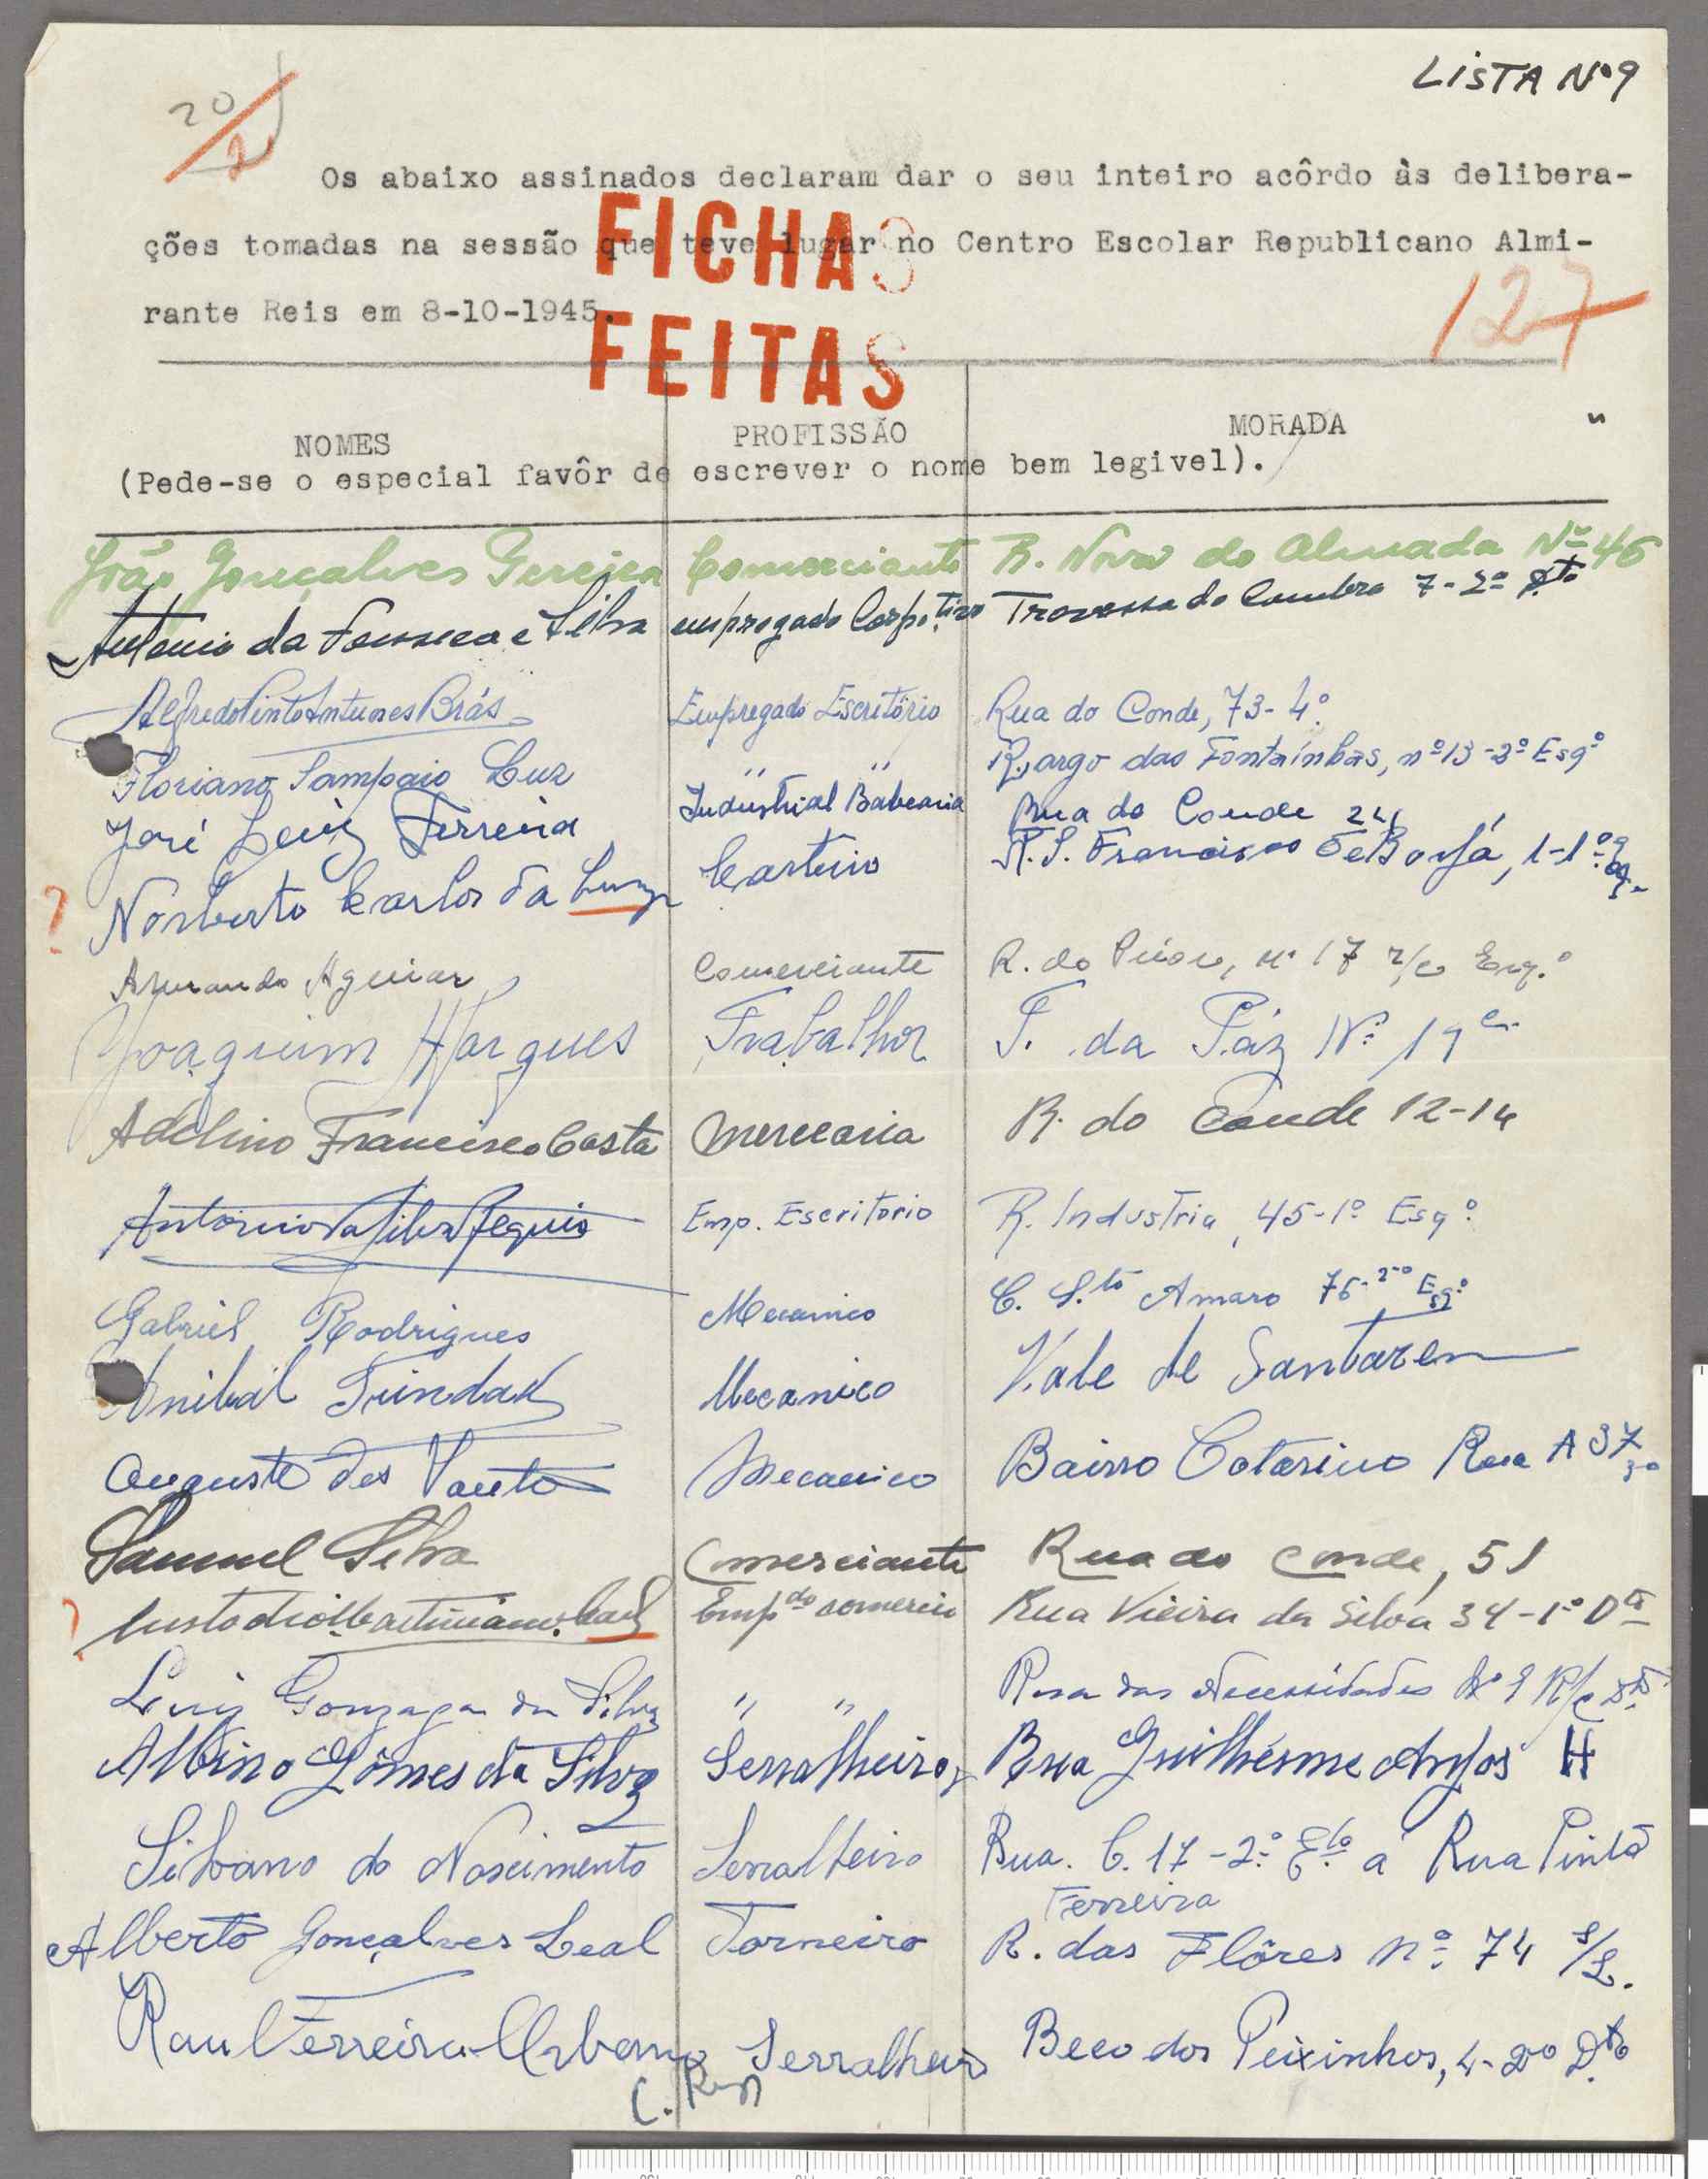 LISTA Nº 9
20
2
Os abaixo assinados declaram dar o seu inteiro acôrdo às delibera-
ções tomadas na sessão que teve lugar no Centro Escolar Republicano Almi-
rante Reis em 8-10-1945.
FICHAS
FEITAS
127
NOMES PROFISSÃO MORADA
(Pede-se o especial favôr de escrever o nome bem legivel).
João Gonçalves Pereira Comerciante R. Nova do Almada Nº 46
Antonio da Fonseca e Silva empregado Corp.tivo Travessa do Combro 7-2º Dto
Alfredo Pinto Antunes Brás Empregado Escritório Rua do Conde, 73-4º
Floriano Sampaio Luz " " Largo das Fontaínhas, nº 13-3º Esqº
José Luiz Ferreira Industrial Rua do Conde 24
Norberto Carlos da Luz Carteiro R. S. Francisco de Borja, 1-1º
? 
Armando Aguiar Comerciante R. do Prior, nº 17 r/c Esq.º
Joaquim Marques Trabalhor T. da Páz Nº 19
Adelino Francisco Costa Mercearia R. do Conde 12-14
Antonio da Silva Emp. Escritorio R. Industria, 45-1º Esqº
Gabriel Rodrigues Mecanico C. S.to Amaro 76-2º Esqº
Anibal Trindade Mecanico Vale de Santarem
Augusto dos Santos Mecanico Bairro Catarino Rua A 37
Samuel Silva Comerciante Rua do Conde, 51
? Custodio Emp.do comercio Rua Vieira da Silva 34-1º Dto
Luiz Gonzaga da Silva " " Rua das Necessidades Nº 9 R/c Dto
Albino Gômes da Silva Serralheiro Rua Guilherme Anjos H
Silvano do Nascimento Serralheiro Rua. C. 17-2º á Rua Pinto
Ferreira
Alberto Gonçalves Leal Torneiro R. das Flôres nº 74 s/L.
Raul Ferreira Urbano Serralheiro Beco dos Peixinhos, 4-2º Dto